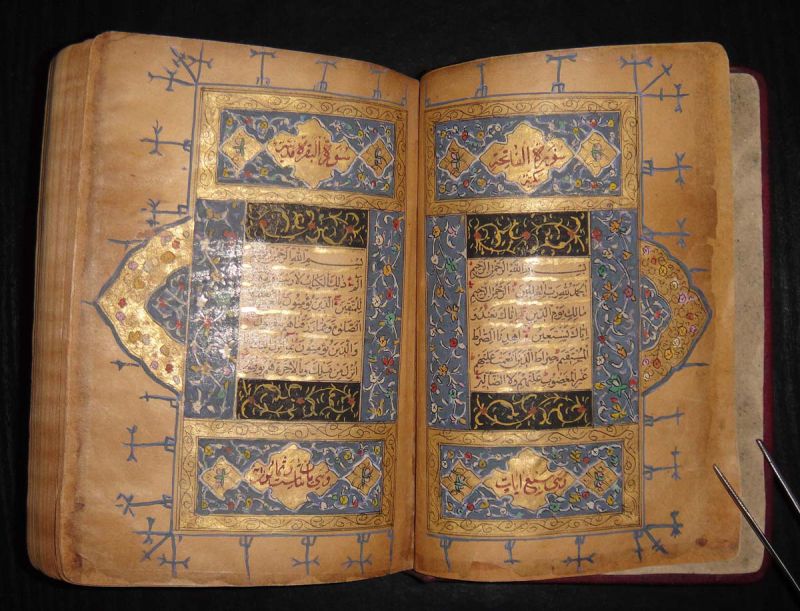 سورة الفاتحة
مكية
بسم الله الرحمن الرحيم
الحمد لله رب العالمين الرحمن الرحيم
مالك يوم الدين اياك نعبد
واياك نستعين اهدنا الصراط
المستقيم صراط الذين انعمت عليهم
غير المغضوب عليهم ولا الضالين
وهي سبع ايات
سورة البقرة مدنية
بسم الله الرحمن الرحيم
الم ذلك الكتاب لا ريب فيه هدى
للمتقين الذين يؤمنون بالغيب ويقيمون
الصلوة ومما رزقناهم ينفقون
والذين يؤمنون بما
انزل من قبلك وبالاخرة هم يوقنون